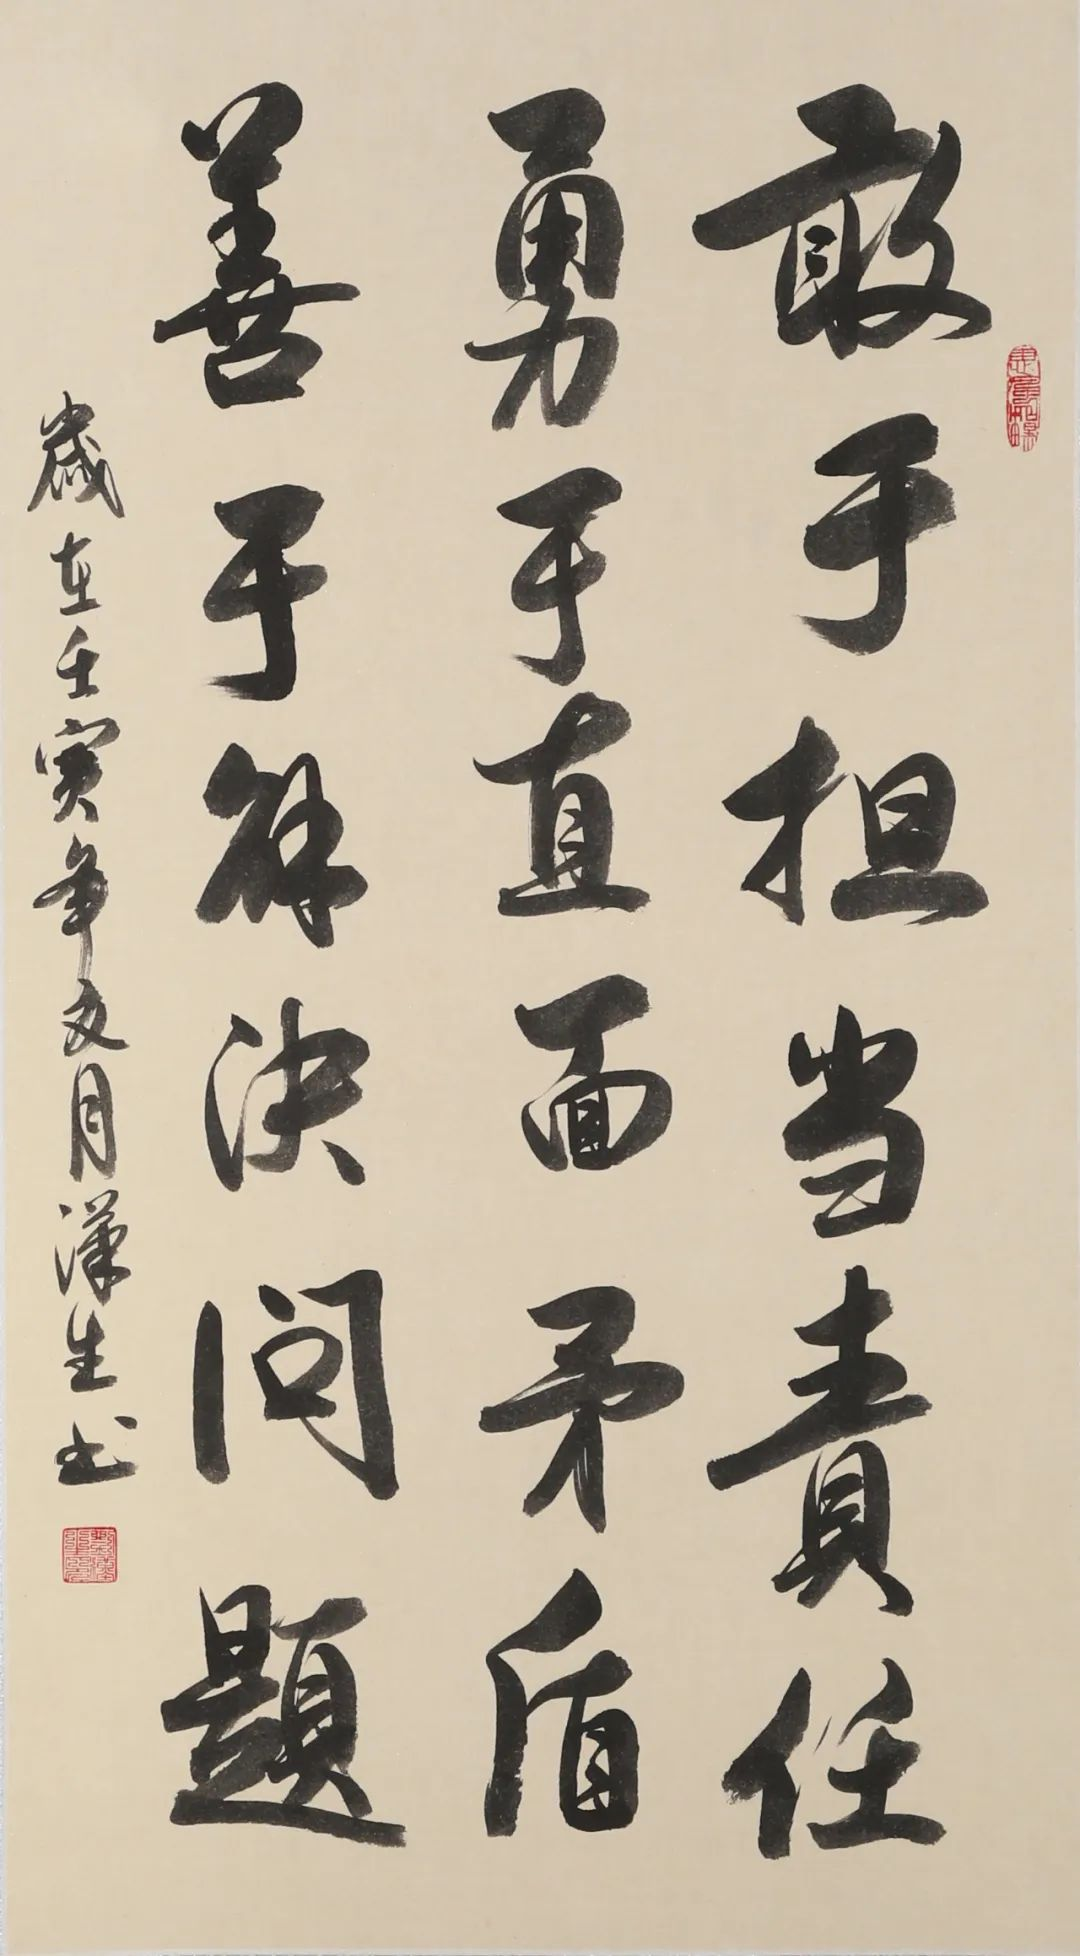 敢于担当责任
勇于直面矛盾
善于解决问题
岁在壬寅年文月汉生书